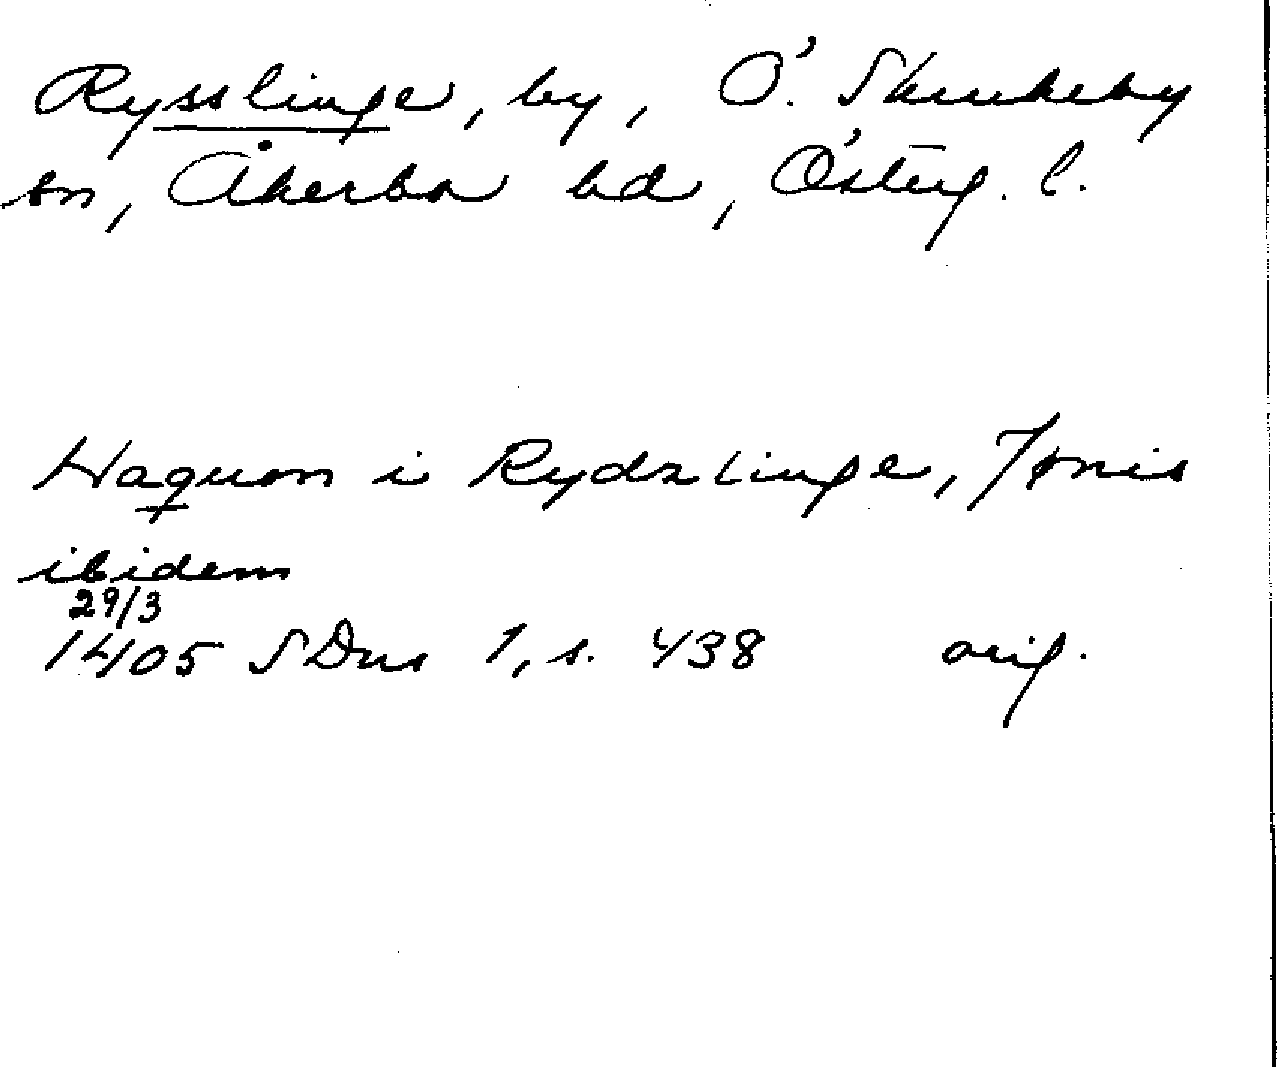 Rysslinge, by, Ö. Skrukeby
sn, Åkerbo hd, Österg. l.
Haquon i Rydzlinge, Jønis
ibidem
29/3
1405 SDns 1, s. 438 orig.